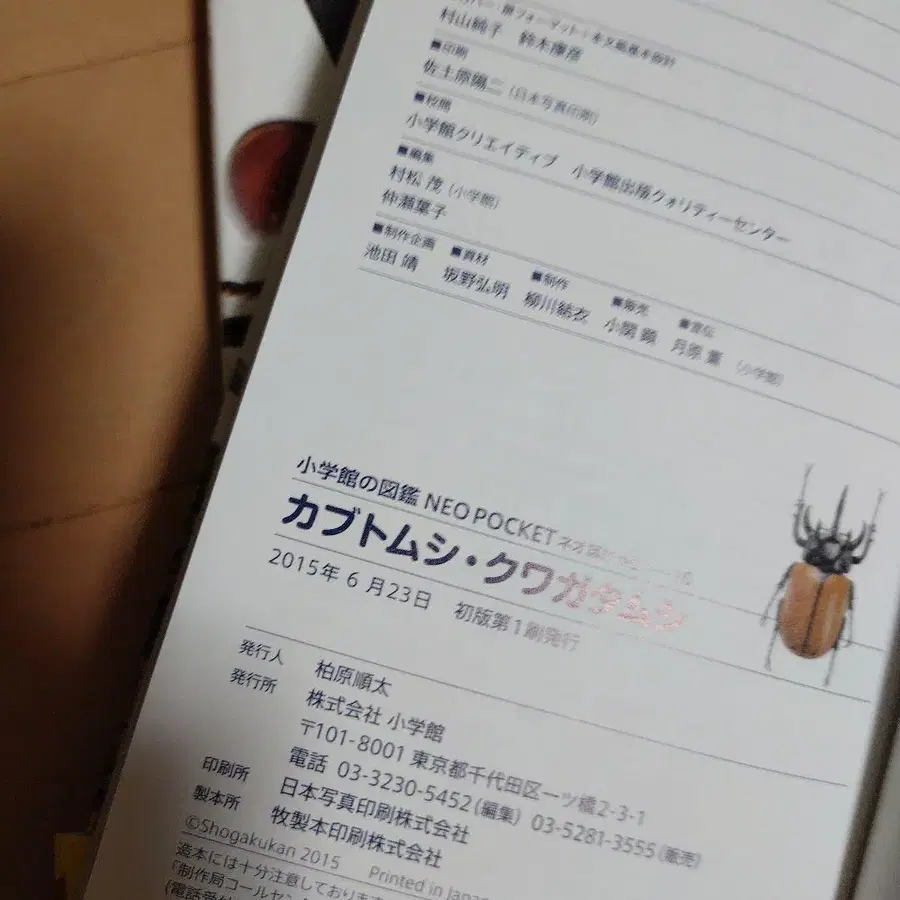 村山純子 鈴木康彦
■印刷
佐土原陽二 (日本写真印刷)
■校閲
小学館クリエイティブ 小学館出版クォリティーセンター
■編集
村松 茂 (小学館)
仲瀬葉子
■制作企画 ■資材 ■制作 ■販売 ■宣伝
池田 靖 坂野弘明 柳川結衣 小関 顕 月原 薫 (小学館)
小学館の図鑑 NEO POCKET
カブトムシ・クワガタムシ
2015年 6 月23日 初版第1刷発行
発行人 柏原順太
発行所 株式会社 小学館
〒101-8001 東京都千代田区一ツ橋2-3-1
電話 03-3230-5452 (編集) 03-5281-3555 (販売)
印刷所 日本写真印刷株式会社
製本所 牧製本印刷株式会社
©Shogakukan 2015 Printed in Japan
造本には十分注意しております
「制作局コールセン